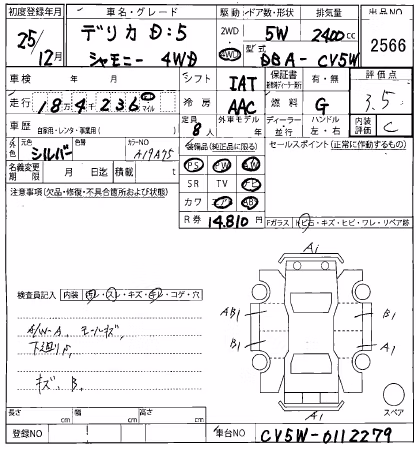 初度登録年月 車名・グレード 駆動 ドア数・形状 排気量 出品NO
25/12月 デリカ D:5 シャモニー 4WD 2WD 4WD 5W 2400cc 2566
型式 DBA-CV5W
車検 年 月 シフト IAT 保証書 有・無 評価点
走行 18万4千236 km マイル 冷房 AAC 燃料 G 3.5
車歴 自家用・レンタ・事業用( ) 定員 8人 外車モデル 年 ディーラー 並行 ハンドル 左・右 内装評価 C
外色 元色 シルバー 色替 カラーNO A19A75 装備品(純正品に限る) セールスポイント(正常に作動するもの)
名義変更期限 月 日迄 積載 t PS PW AW
注意事項(欠品・修復・不具合箇所および状態) SR TV ナビ
カワ エアB ABS
R券 14,810円 Fガラス トビ石・キズ・ヒビ・ワレ・リペア跡
A1
検査員記入 内装 汚レ・スレ・キズ・キレ・コゲ・穴
AB1 B1
A/W-A
B1 A1
キズ、B
A1 スペア
長さ cm 幅 cm 高さ cm
登録NO 車台NO CV5W-0112279